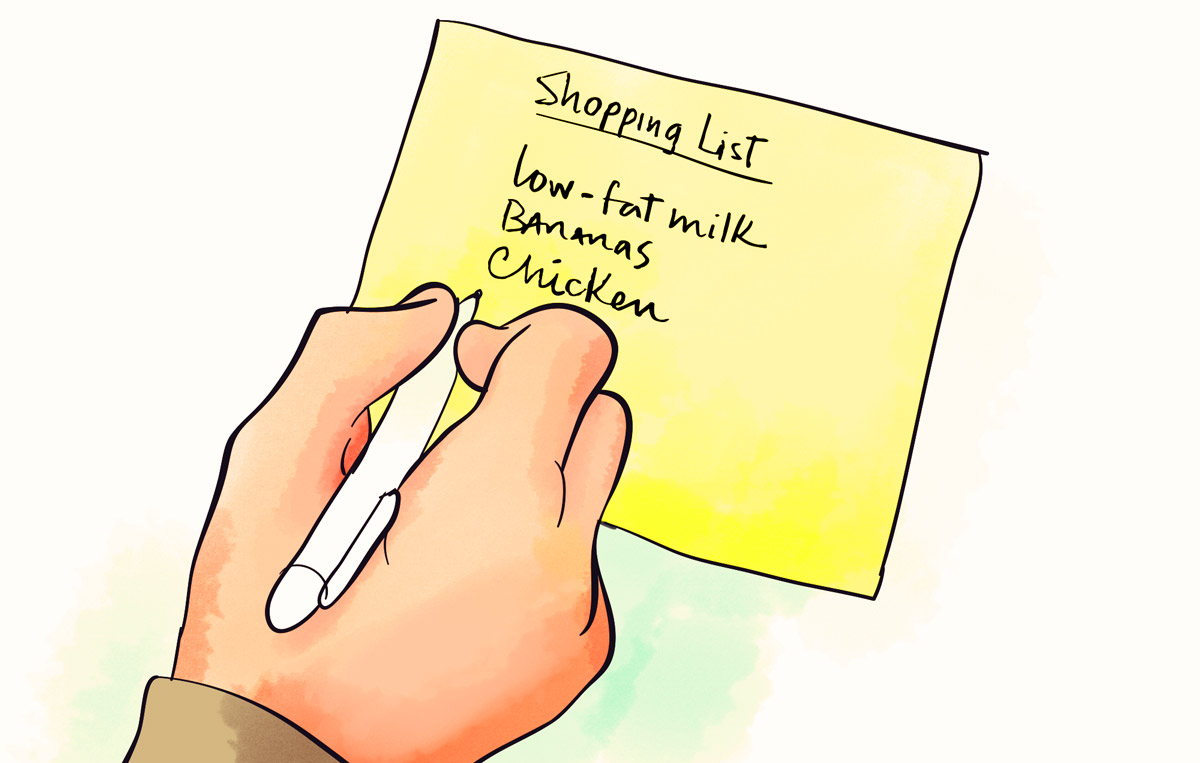 Shopping List
low-fat milk
Bananas
Chicken